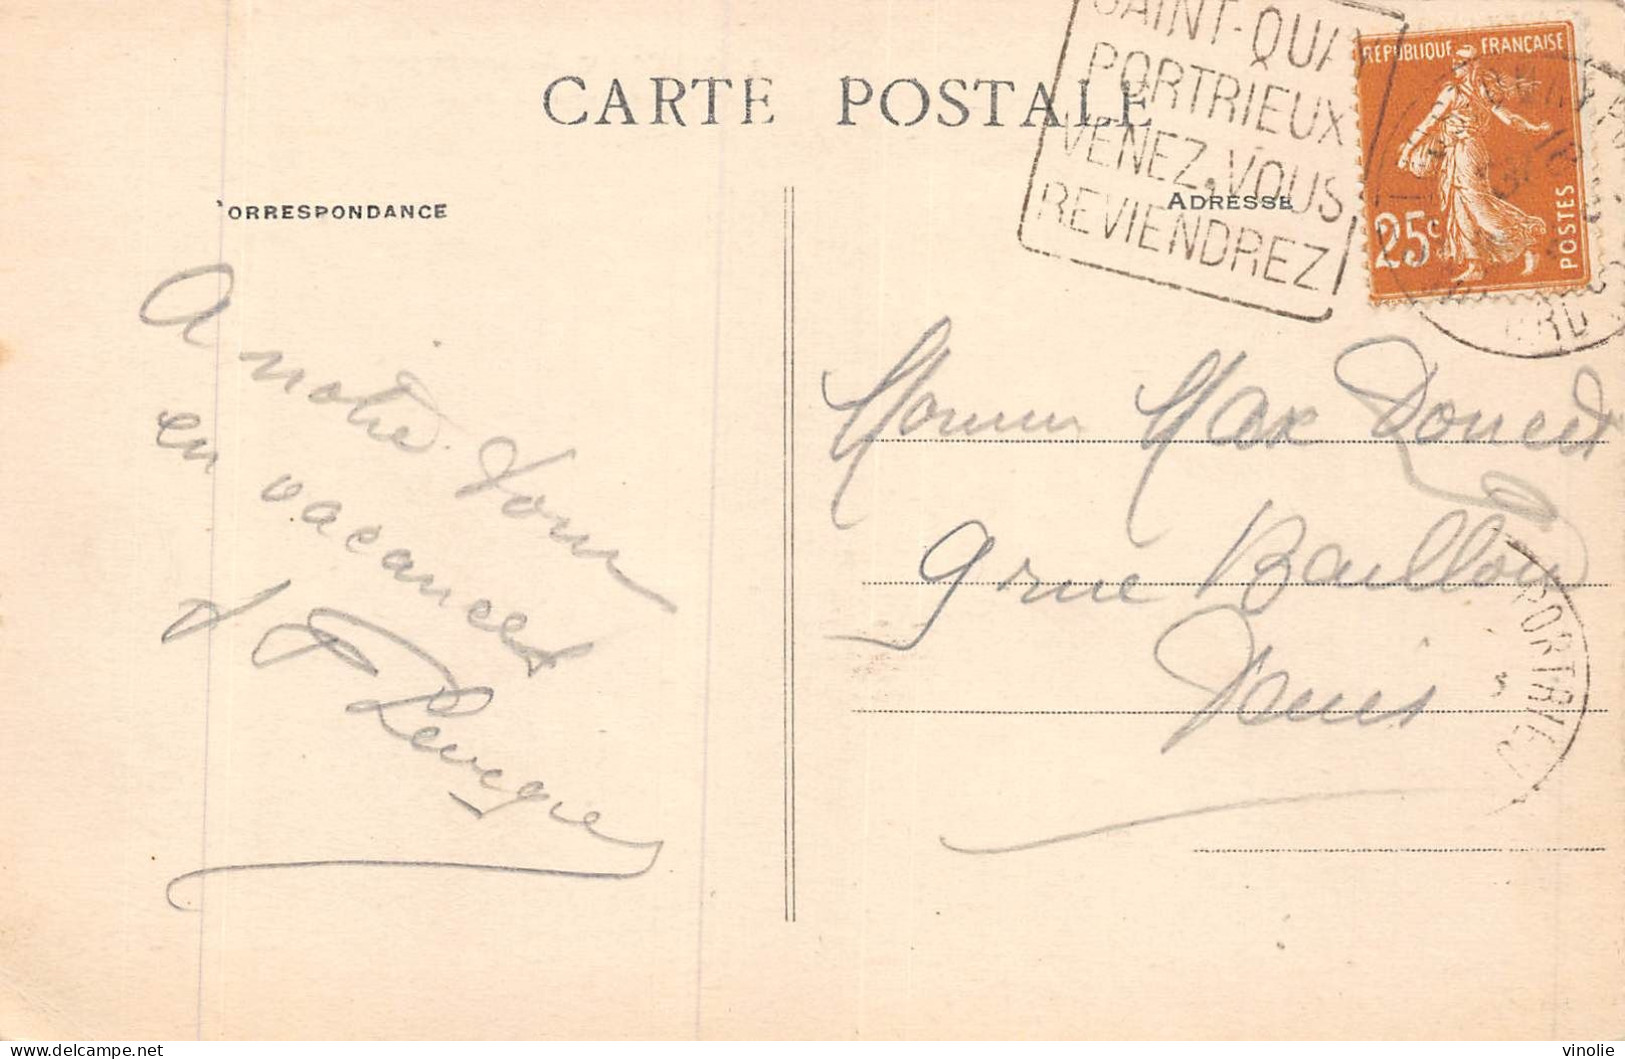 CARTE POSTALE
SAINT-QUA
PORTRIEUX
VENEZ-VOUS
REVIENDREZ
REPUBLIQUE FRANÇAISE
25c
POSTES
ORRESPONDANCE
ADRESSE
A notre tour
en vacances
Monsieur Max Doucet
9 rue Baillou
Paris
PORTRIEUX
delcampe.net
vinolie